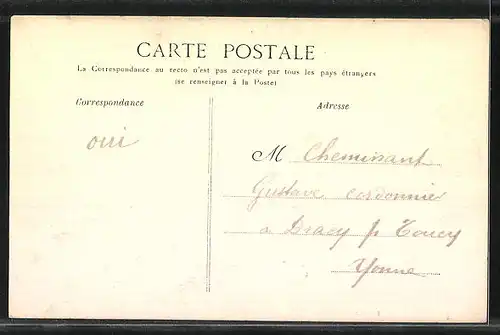 CARTE POSTALE
La Correspondance au recto n'est pas acceptée par tous les pays étrangers
(se renseigner à la Poste)
Correspondance
Adresse
oui
M Cheminant
Gustave cordonnier
à Dracy p Toucy
Yonne